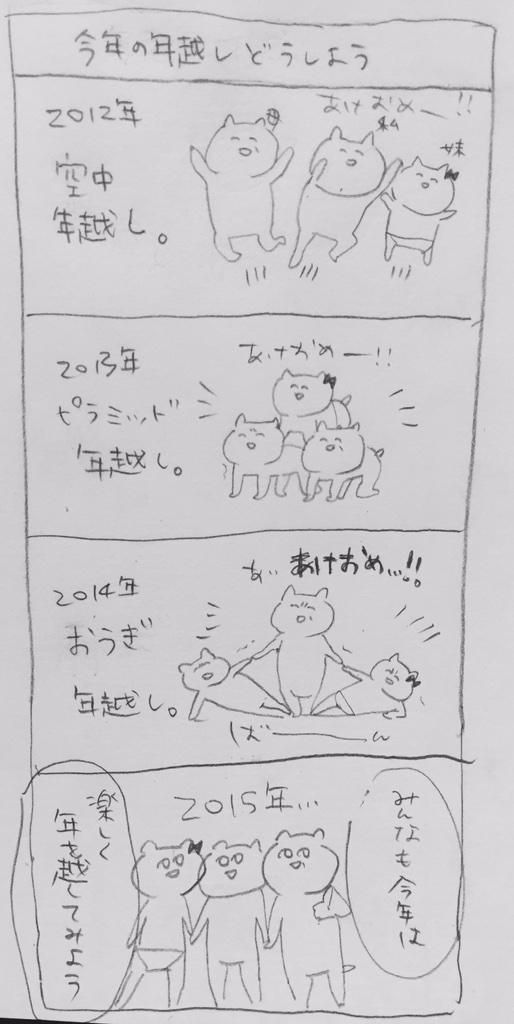 今年の年越しどうしよう
2012年
空中
年越し。
あけおめー!!
母
私
妹
2013年
ピラミッド
年越し。
あけおめー!!
2014年
おうぎ
年越し。
あ…あけおめ…!!
ばーーん
2015年…
みんなも今年は
楽しく
年を越してみよう